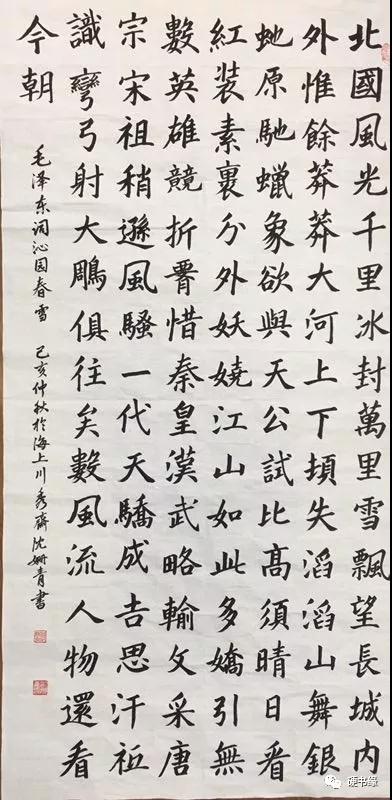 北國風光千里冰封萬里雪飄望長城内
外惟餘莽莽大河上下頓失滔滔山舞銀
虵原馳蠟象欲與天公試比高須晴日看
紅装素裹分外妖嬈江山如此多嬌引無
數英雄競折腰惜秦皇漢武略輸文采唐
宗宋祖稍遜風騷一代天驕成吉思汗祗
識彎弓射大鵰俱往矣數風流人物還看
今朝
毛泽东词沁园春雪 己亥仲秋於海上川秀齋沈姗青書
硬书缘